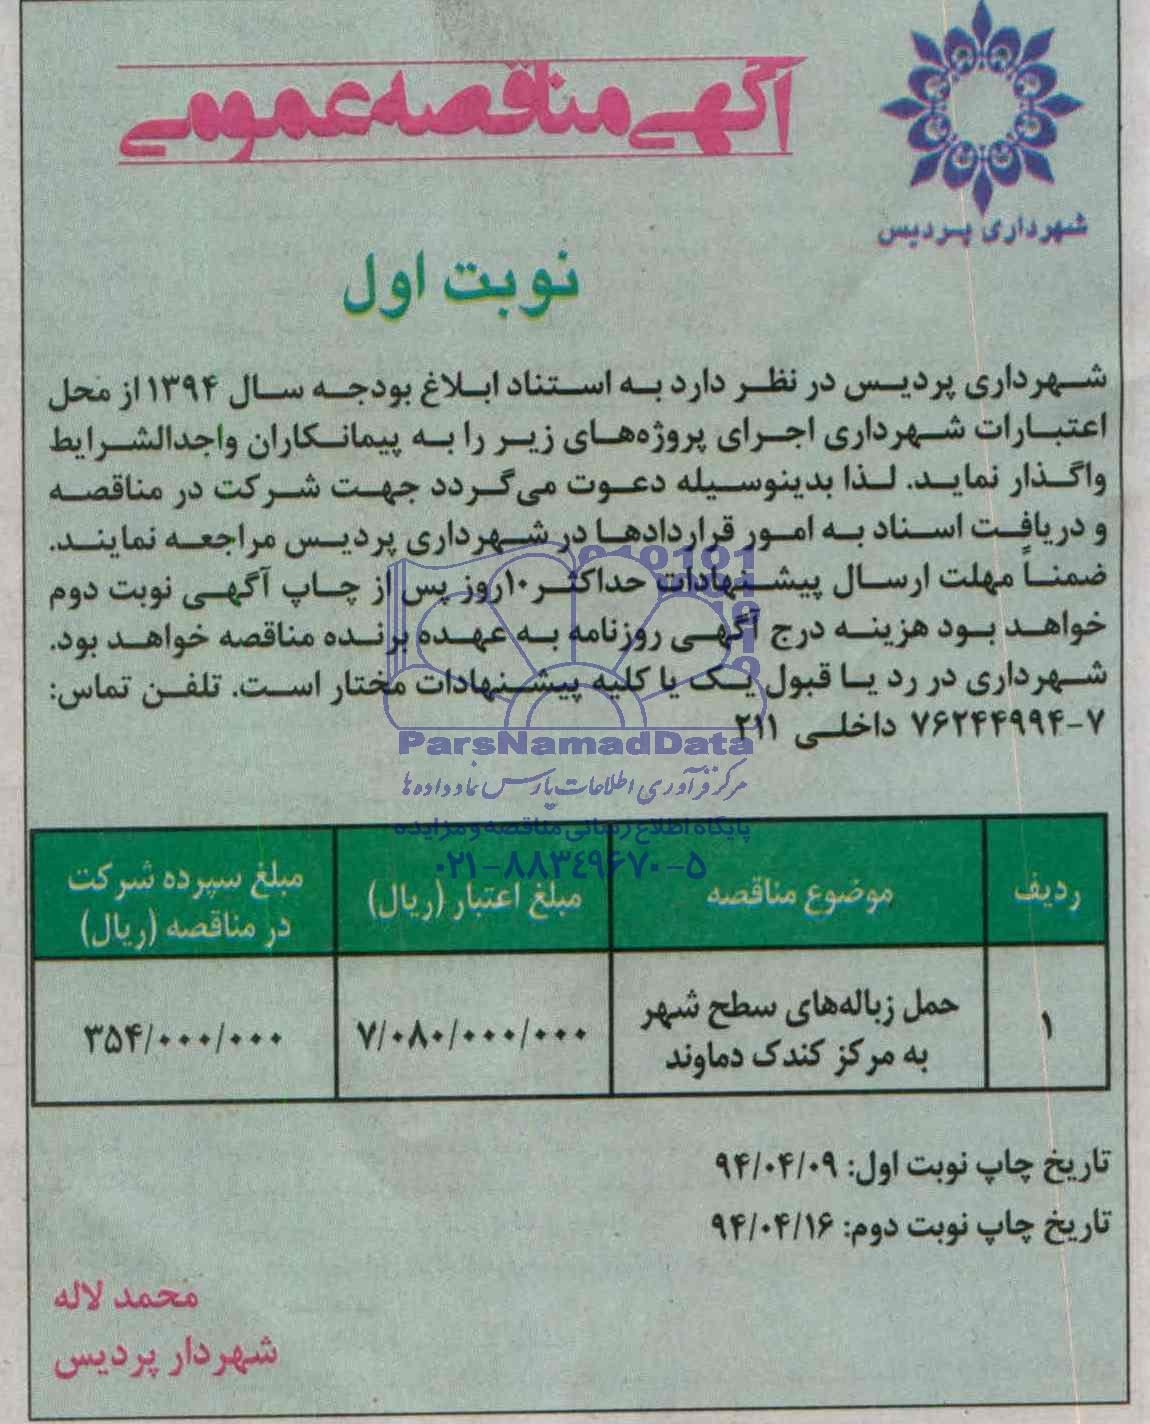 آگهی مناقصه عمومی
شهرداری پردیس
نوبت اول
شهرداری پردیس در نظر دارد به استناد ابلاغ بودجه سال ۱۳۹۴ از محل
اعتبارات شهرداری اجرای پروژه‌های زیر را به پیمانکاران واجدالشرایط
واگذار نماید. لذا بدینوسیله دعوت می‌گردد جهت شرکت در مناقصه
و دریافت اسناد به امور قراردادها در شهرداری پردیس مراجعه نمایند.
ضمناً مهلت ارسال پیشنهادات حداکثر ۱۰روز پس از چاپ آگهی نوبت دوم
خواهد بود هزینه درج آگهی روزنامه به عهده برنده مناقصه خواهد بود.
شهرداری در رد یا قبول یک یا کلیه پیشنهادات مختار است. تلفن تماس:
۷۶۲۴۴۹۹۴-۷ داخلی ۲۱۱
ParsNamadData
مرکز فرآوری اطلاعات پارس نماد داده ها
پایگاه اطلاع رسانی مناقصه و مزایده
۰۲۱-۸۸۳۴۹۶۷۰-۵
ردیف موضوع مناقصه مبلغ اعتبار (ریال) مبلغ سپرده شرکت
در مناقصه (ریال)
۱ حمل زباله‌های سطح شهر
به مرکز کندک دماوند
۷/۰۸۰/۰۰۰/۰۰۰ ۳۵۴/۰۰۰/۰۰۰
تاریخ چاپ نوبت اول: ۹۴/۰۴/۰۹
تاریخ چاپ نوبت دوم: ۹۴/۰۴/۱۶
محمد لاله
شهردار پردیس